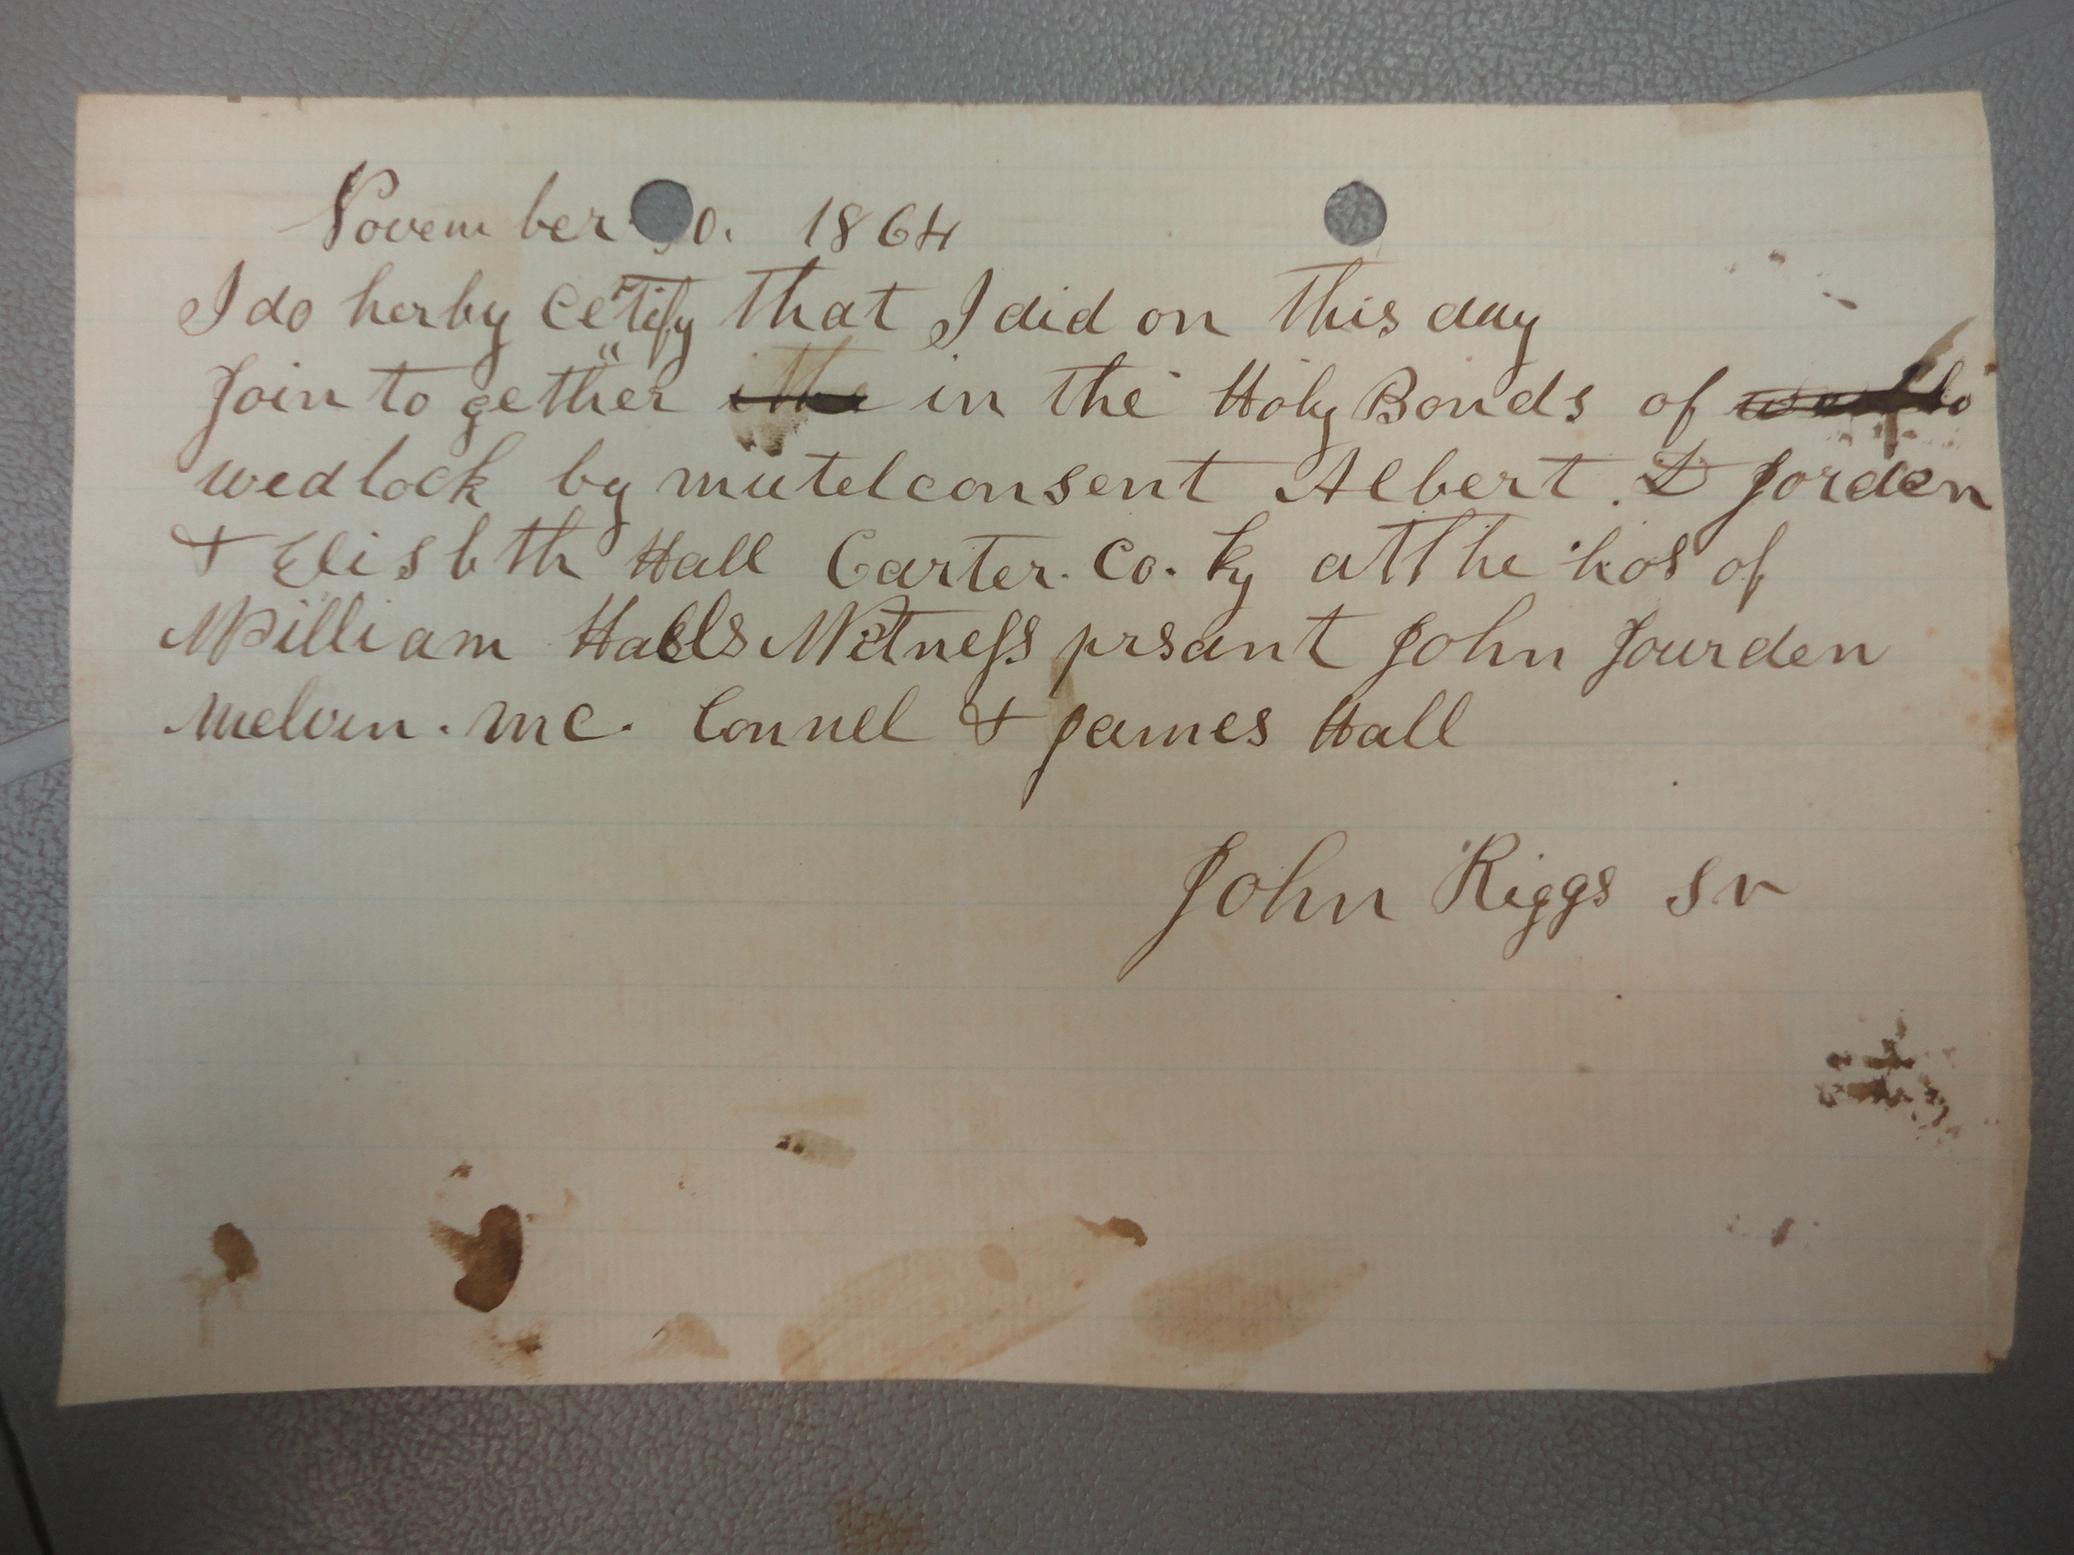 November 0. 1864
I do herby Certify that I did on this day
Join to gether in the Holy Bonds of
wedlock by mutelconsent Albert. D Jorden
& Elisbth Hall Carter. Co. Ky at the hos of
William Halls Witness prsant John Jourden
Melvin. Mc. Connel & James Hall
John Riggs Sr